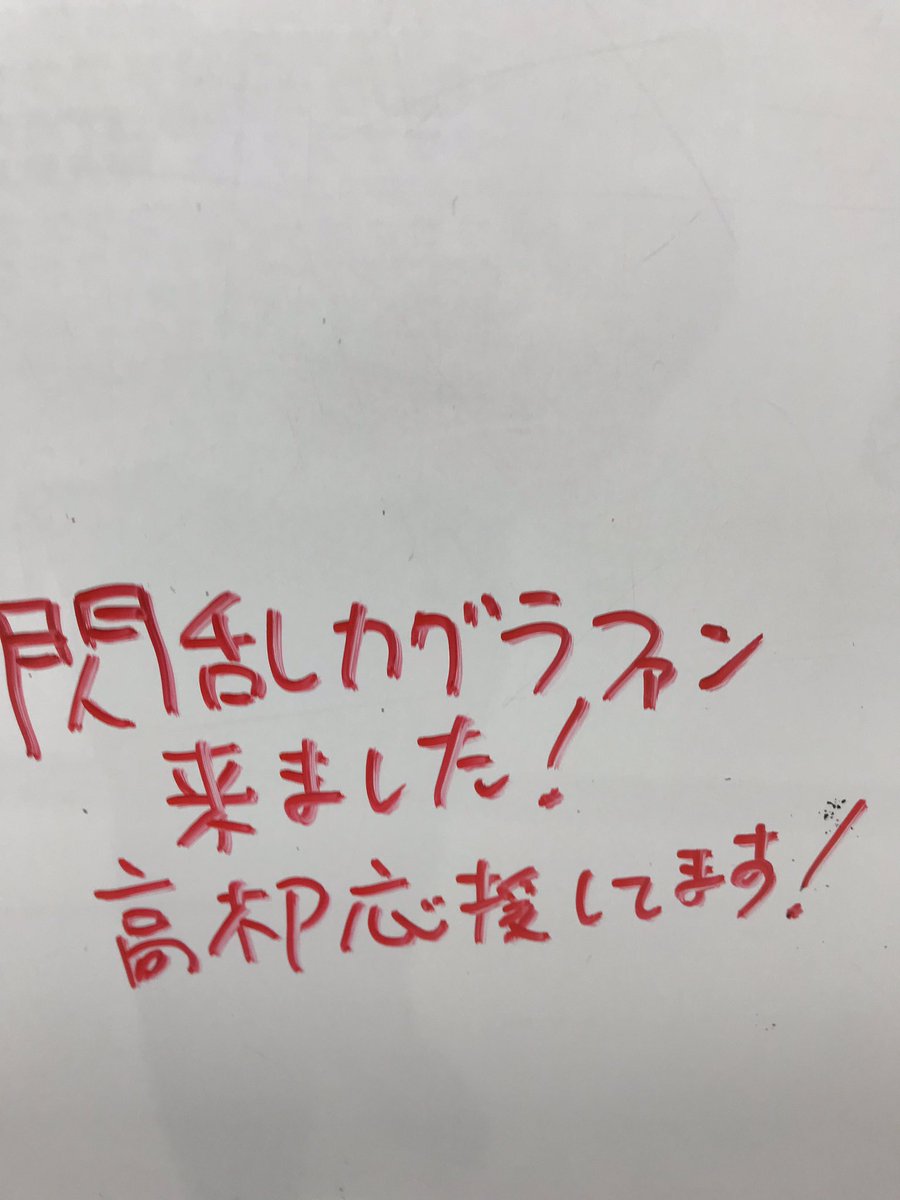 閃乱カグラファン
来ました!
高木P応援してます!